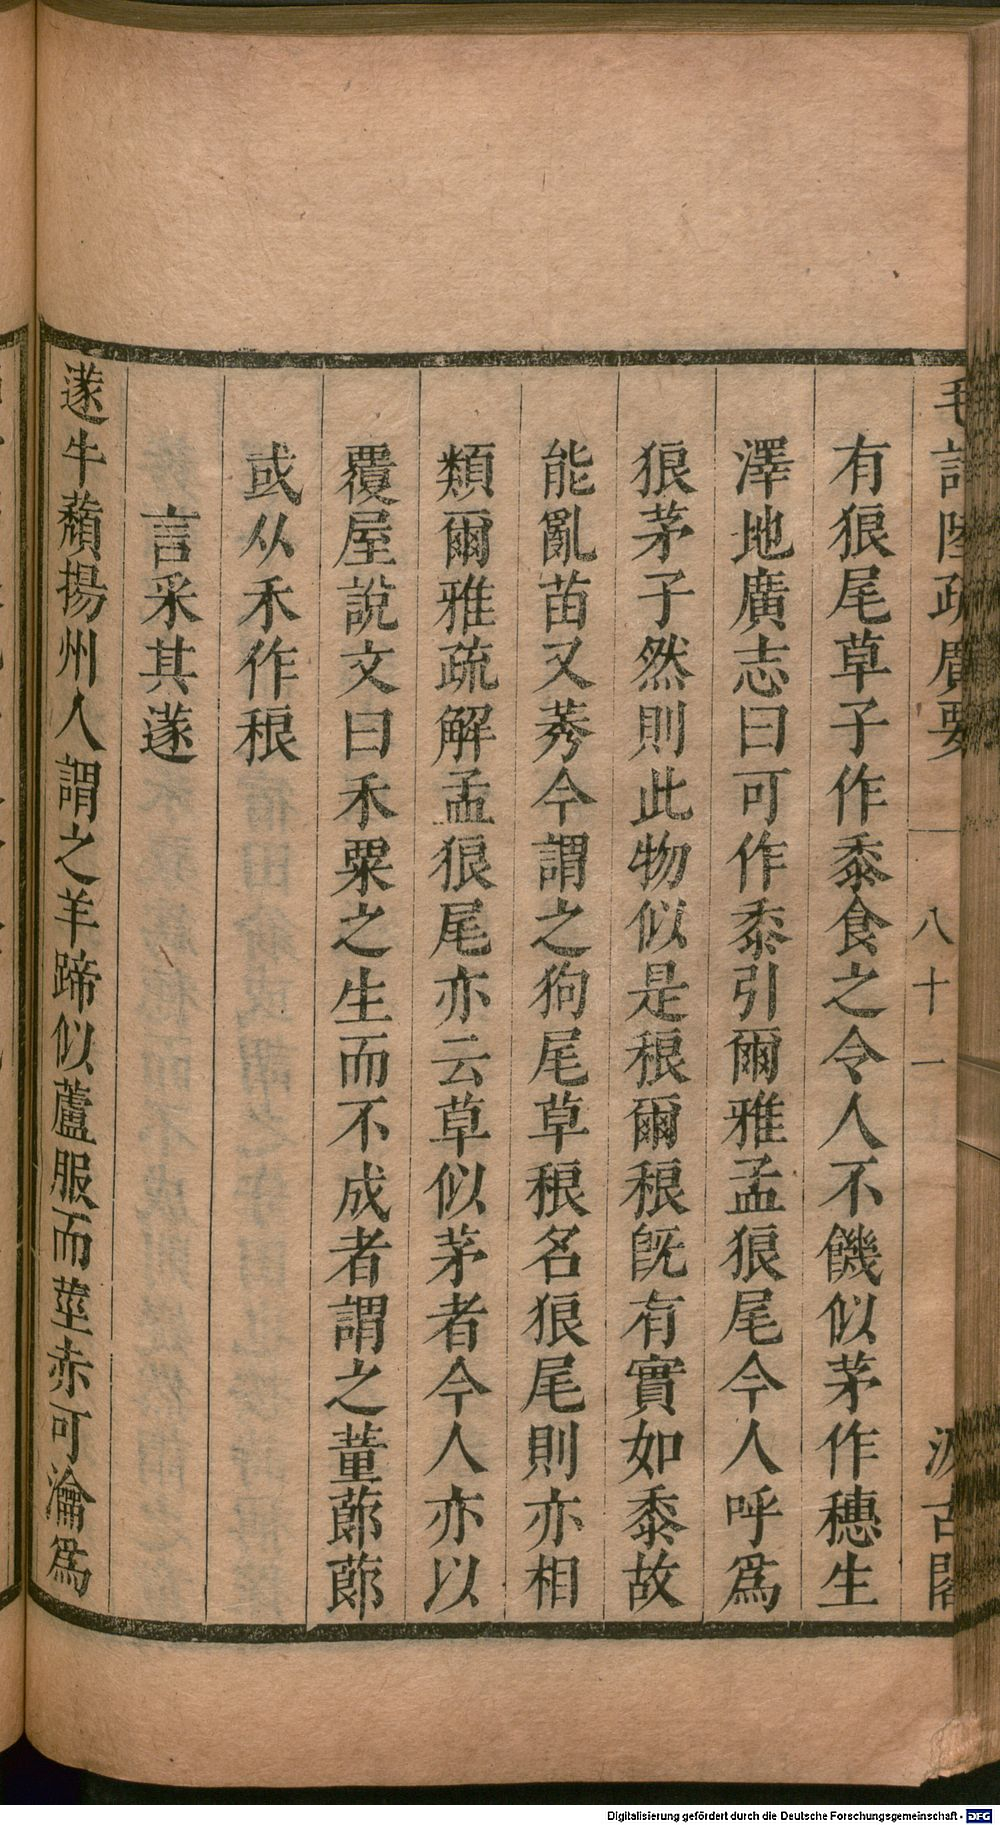 毛詩陸疏廣要 八十一 汲古閣
有狼尾草子作黍食之令人不饑似茅作穗生
澤地廣志曰可作黍引爾雅孟狼尾今人呼爲
狼茅子然則此物似是稂爾稂旣有實如黍故
能亂苗又莠今謂之狗尾草稂名狼尾則亦相
類爾雅疏解孟狼尾亦云草似茅者今人亦以
覆屋說文曰禾粟之生而不成者謂之董蓈蓈
或从禾作稂
言采其蓫
蓫牛蘈揚州人謂之羊蹄似蘆服而莖赤可瀹爲
Digitalisierung gefördert durch die Deutsche Forschungsgemeinschaft - DFG